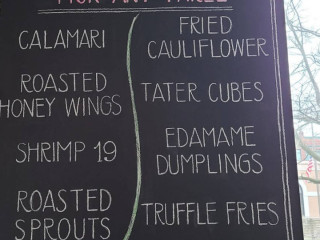 PICK ANY THREE
CALAMARI
ROASTED
HONEY WINGS
SHRIMP 19
ROASTED
SPROUTS
FRIED
CAULIFLOWER
TATER CUBES
EDAMAME
DUMPLINGS
TRUFFLE FRIES